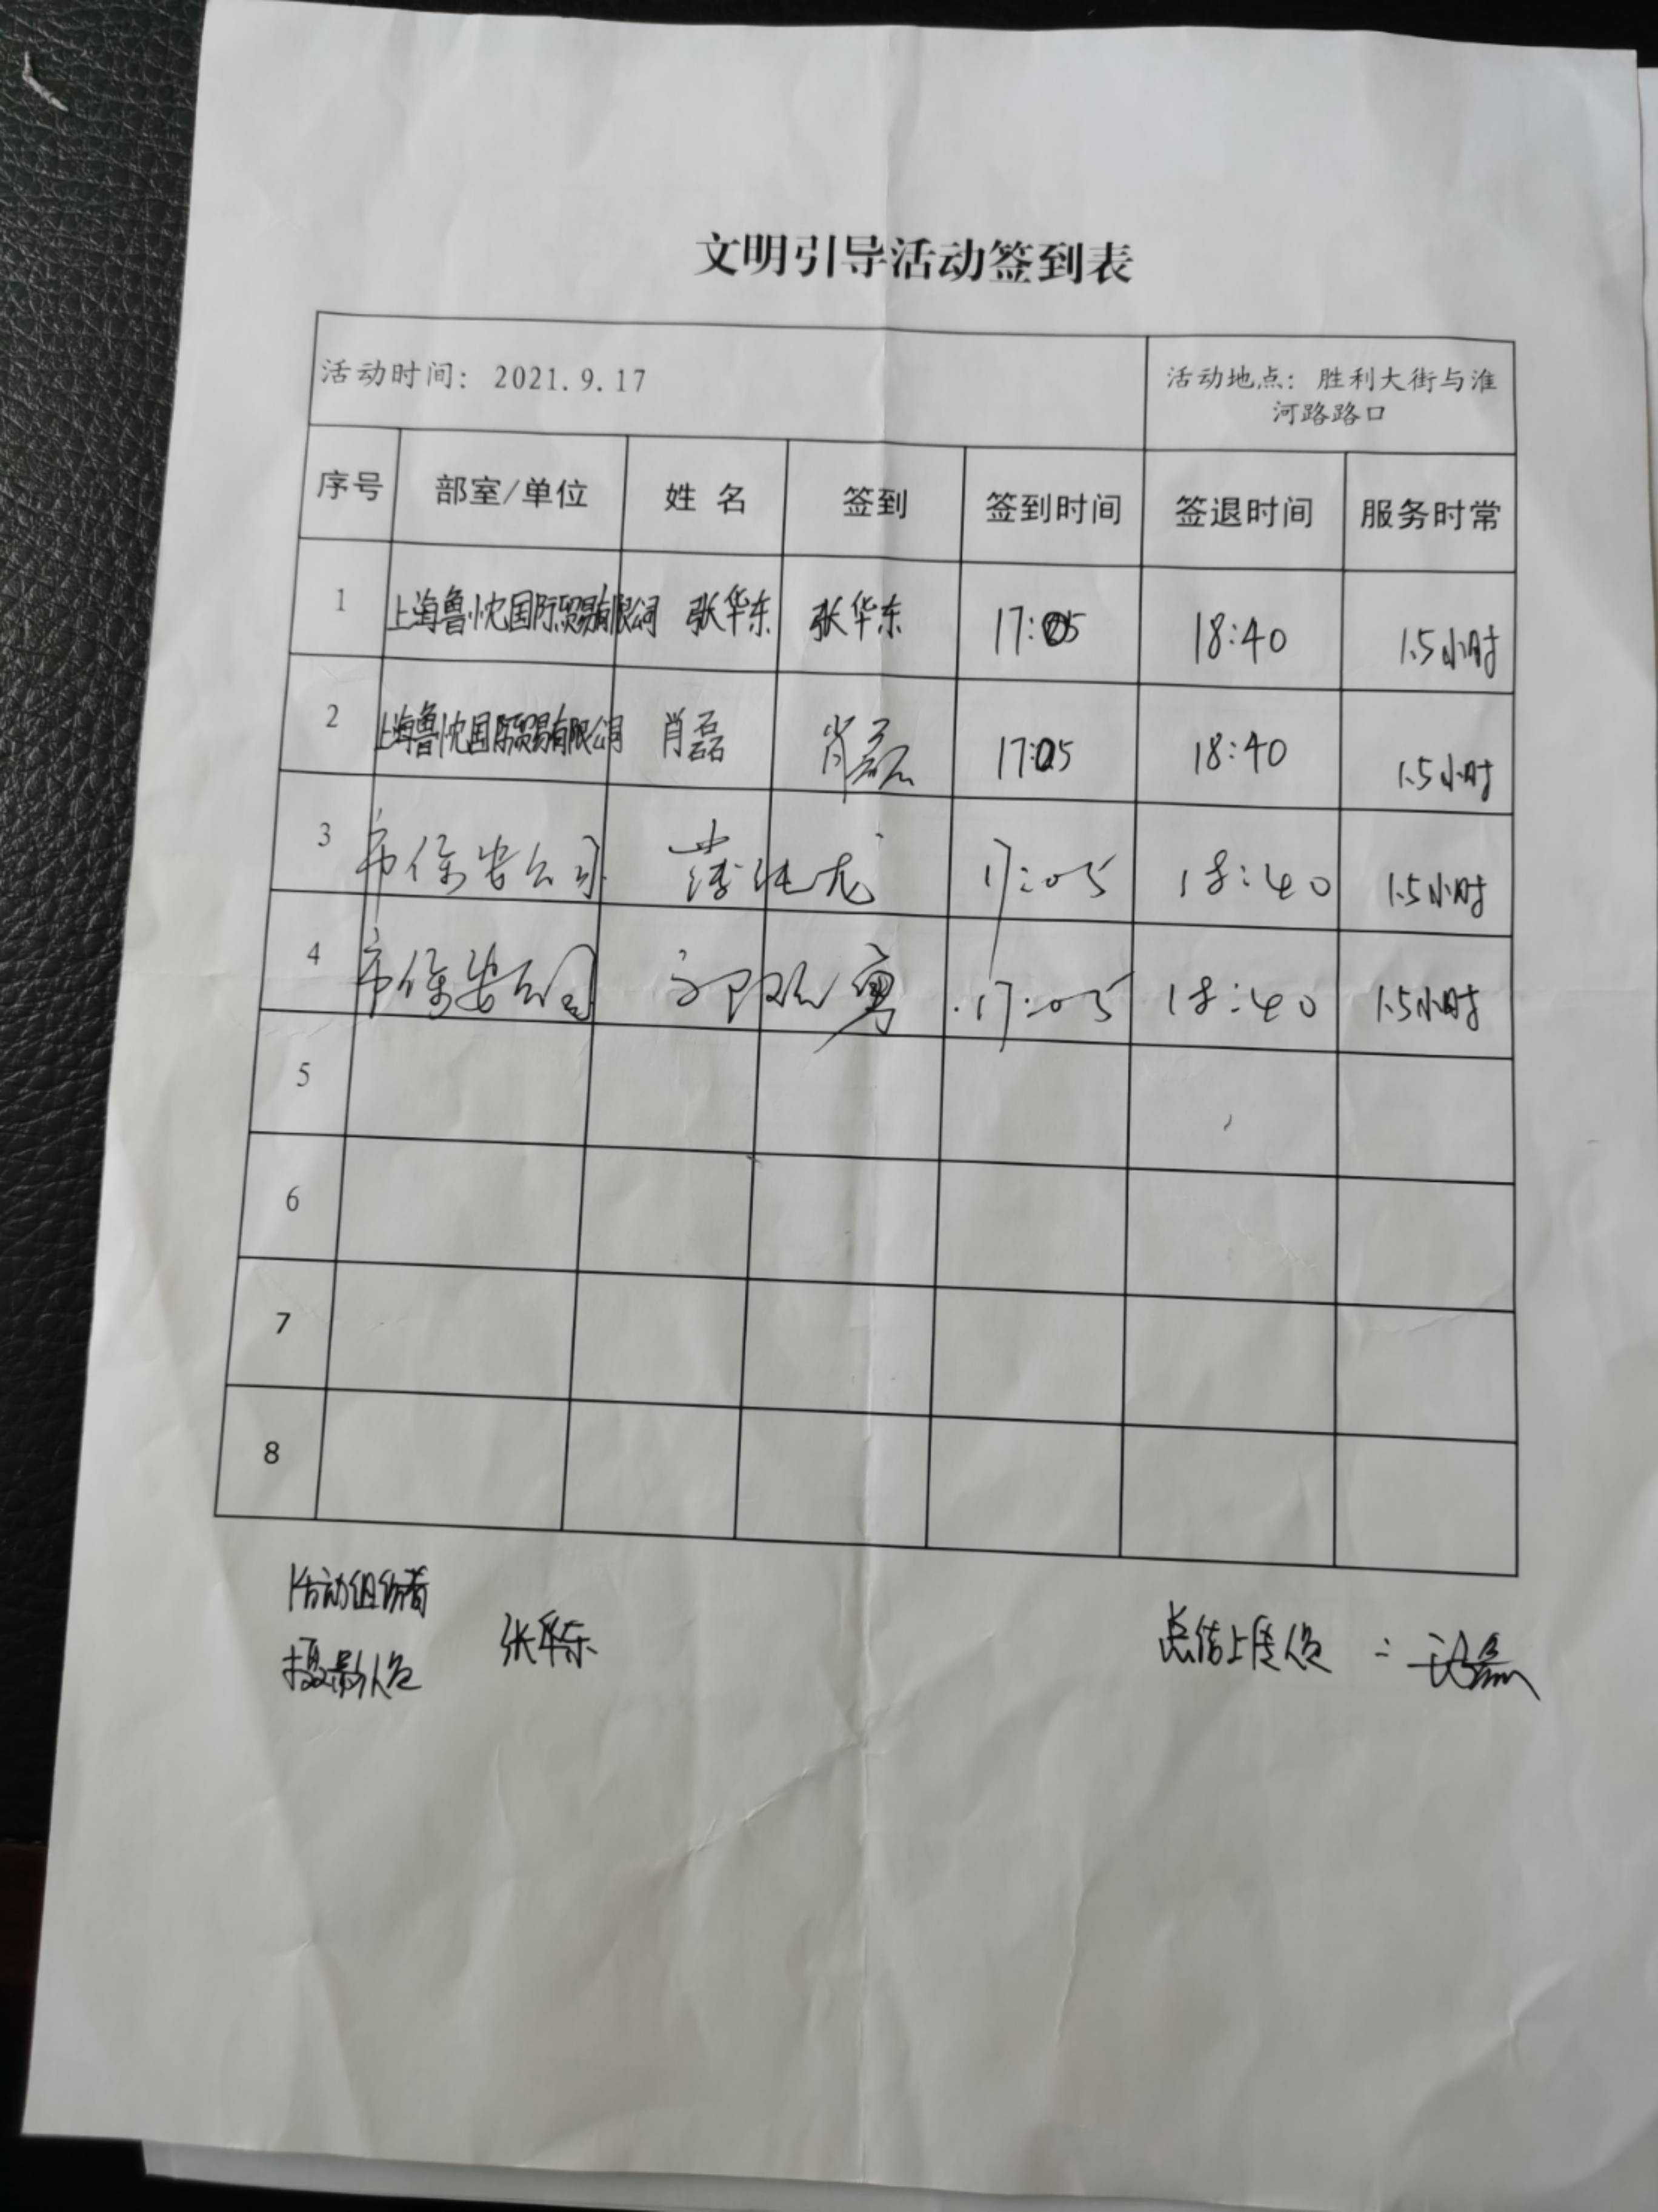 文明引导活动签到表
活动时间: 2021.9.17
活动地点: 胜利大街与淮
河路路口
序号 部室/单位 姓 名 签到 签到时间 签退时间 服务时常
1 上海鲁忱国际贸易有限公司 张华东 张华东 17:05 18:40 1.5小时
2 上海鲁忱国际贸易有限公司 肖磊 肖磊 17:05 18:40 1.5小时
3 市保安公司 17:05 18:40 1.5小时
4 市保安公司 17:05 18:40 1.5小时
5
6
7
8
活动组织者
摄影人员 张华东
总结上传人员: